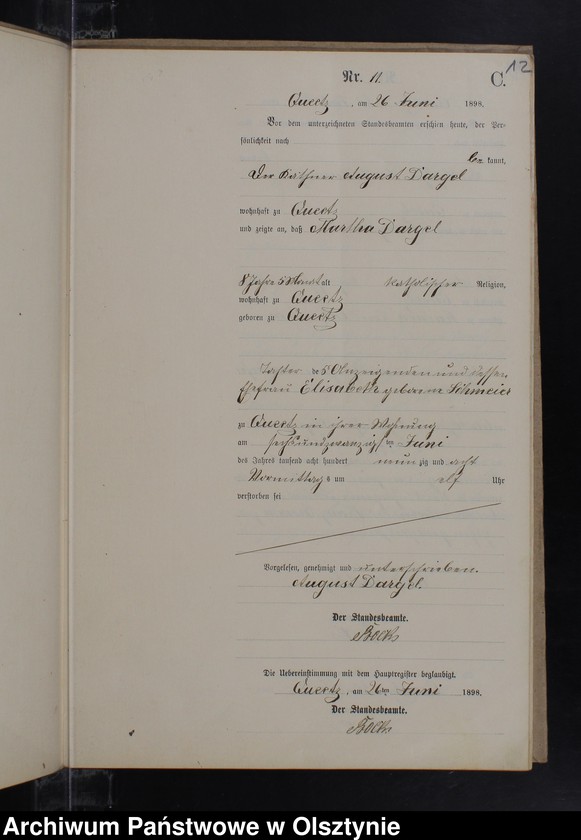 12
Nr. 11.
C.
Queetz, am 26 Juni 1898.
Vor dem unterzeichneten Standesbeamten erschien heute, der Per-
sönlichkeit nach
be kannt,
Der Käthner August Dargel
wohnhaft zu Queetz
und zeigte an, daß Martha Dargel
8 Jahre 5 Monat alt katholischer Religion,
wohnhaft zu Queetz
geboren zu Queetz
Tochter des Anzeigenden und dessen
Ehefrau Elisabeth geborene Schmeier
zu Queetz in ihrer Wohnung
am sechsundzwanzigsten Juni
des Jahres tausend acht hundert neun zig und acht
Vormittag s um elf Uhr
verstorben sei
Vorgelesen, genehmigt und unterschrieben.
August Dargel.
Der Standesbeamte.
Bock
Die Uebereinstimmung mit dem Hauptregister beglaubigt.
Queetz, am 26ten Juni 1898.
Der Standesbeamte.
Bock
Archiwum Państwowe w Olsztynie